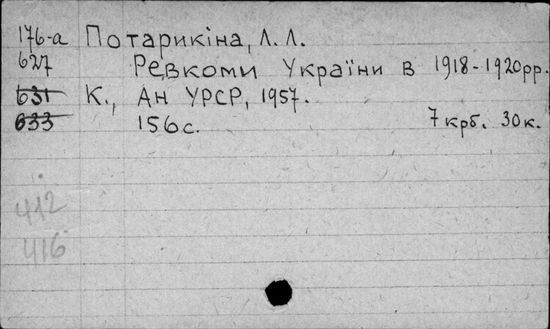 176-а Потарикіна, Л. Л.
627 Ревкоми України в 1918-1920рр.
631 К., Ан УРСР, 1957.
633 156с. 7 крб. 30к.
412
416